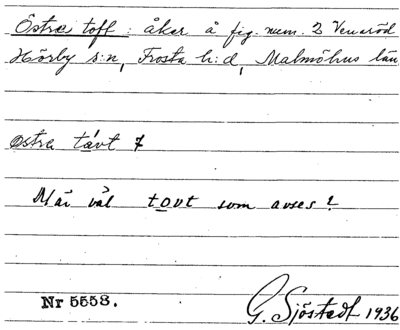 Östra toft : åker å fig. num. 2 Venaröd
Hörby s:n, Frosta h:d, Malmöhus län
östra tåvt 7
Må väl tovt som avses?
Nr 5553.
G. Sjöstedt 1936